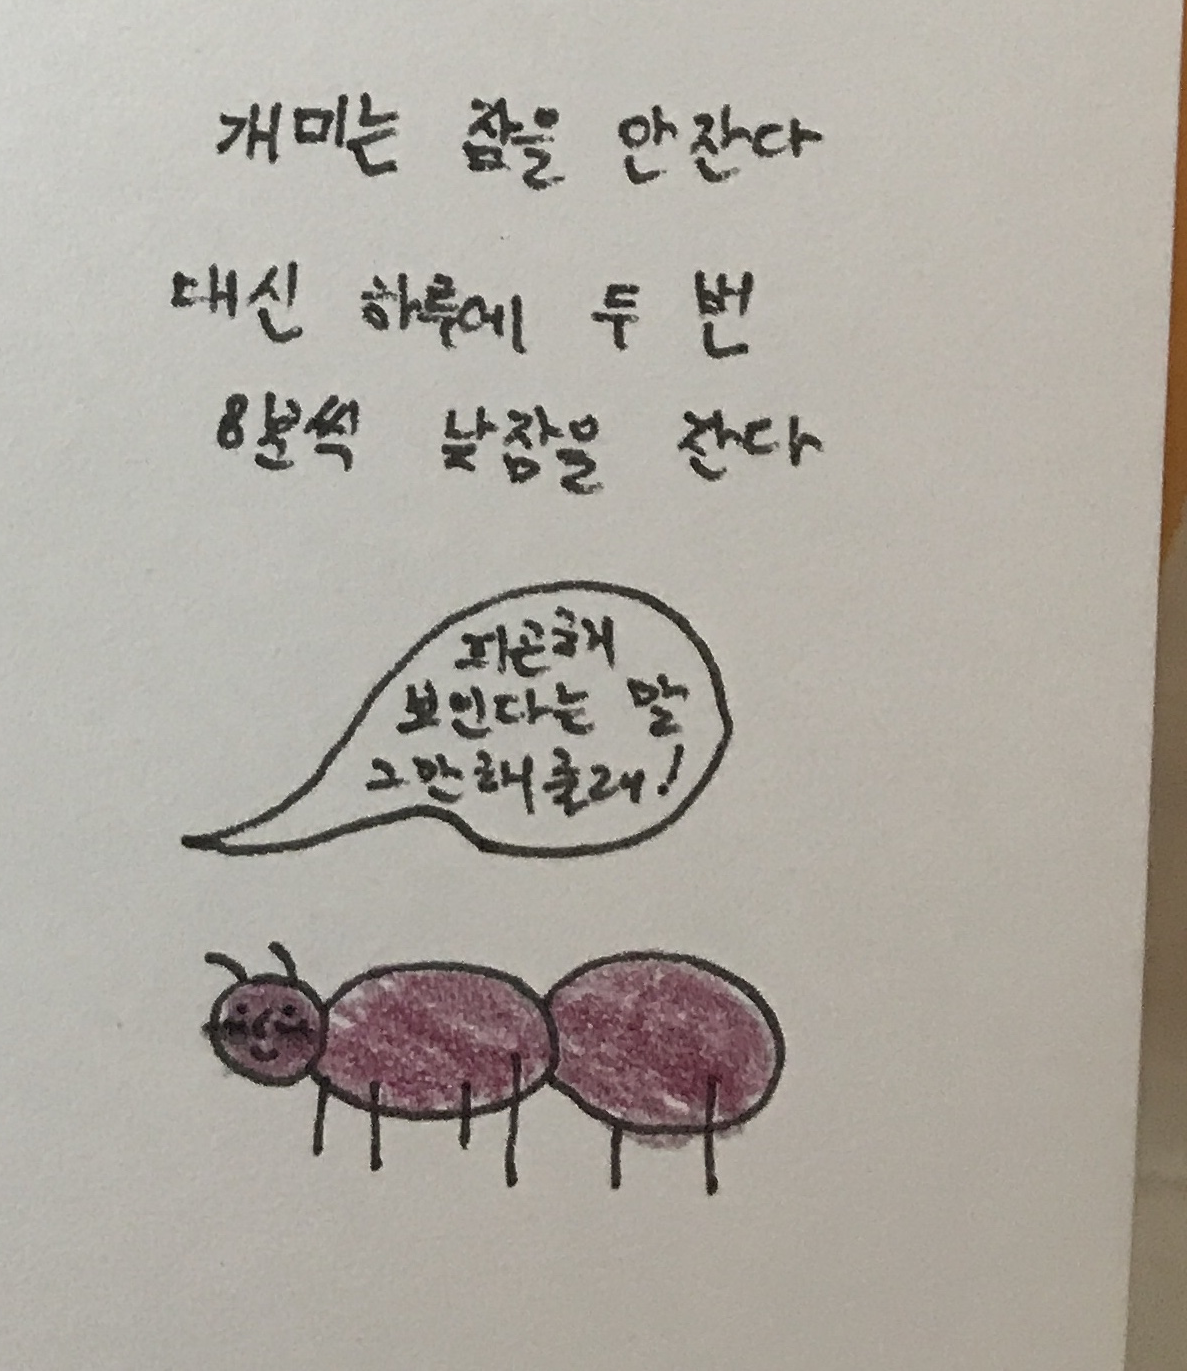 개미는 잠을 안잔다
대신 하루에 두 번
8분씩 낮잠을 잔다
피곤해
보인다는 말
그만해줄래!